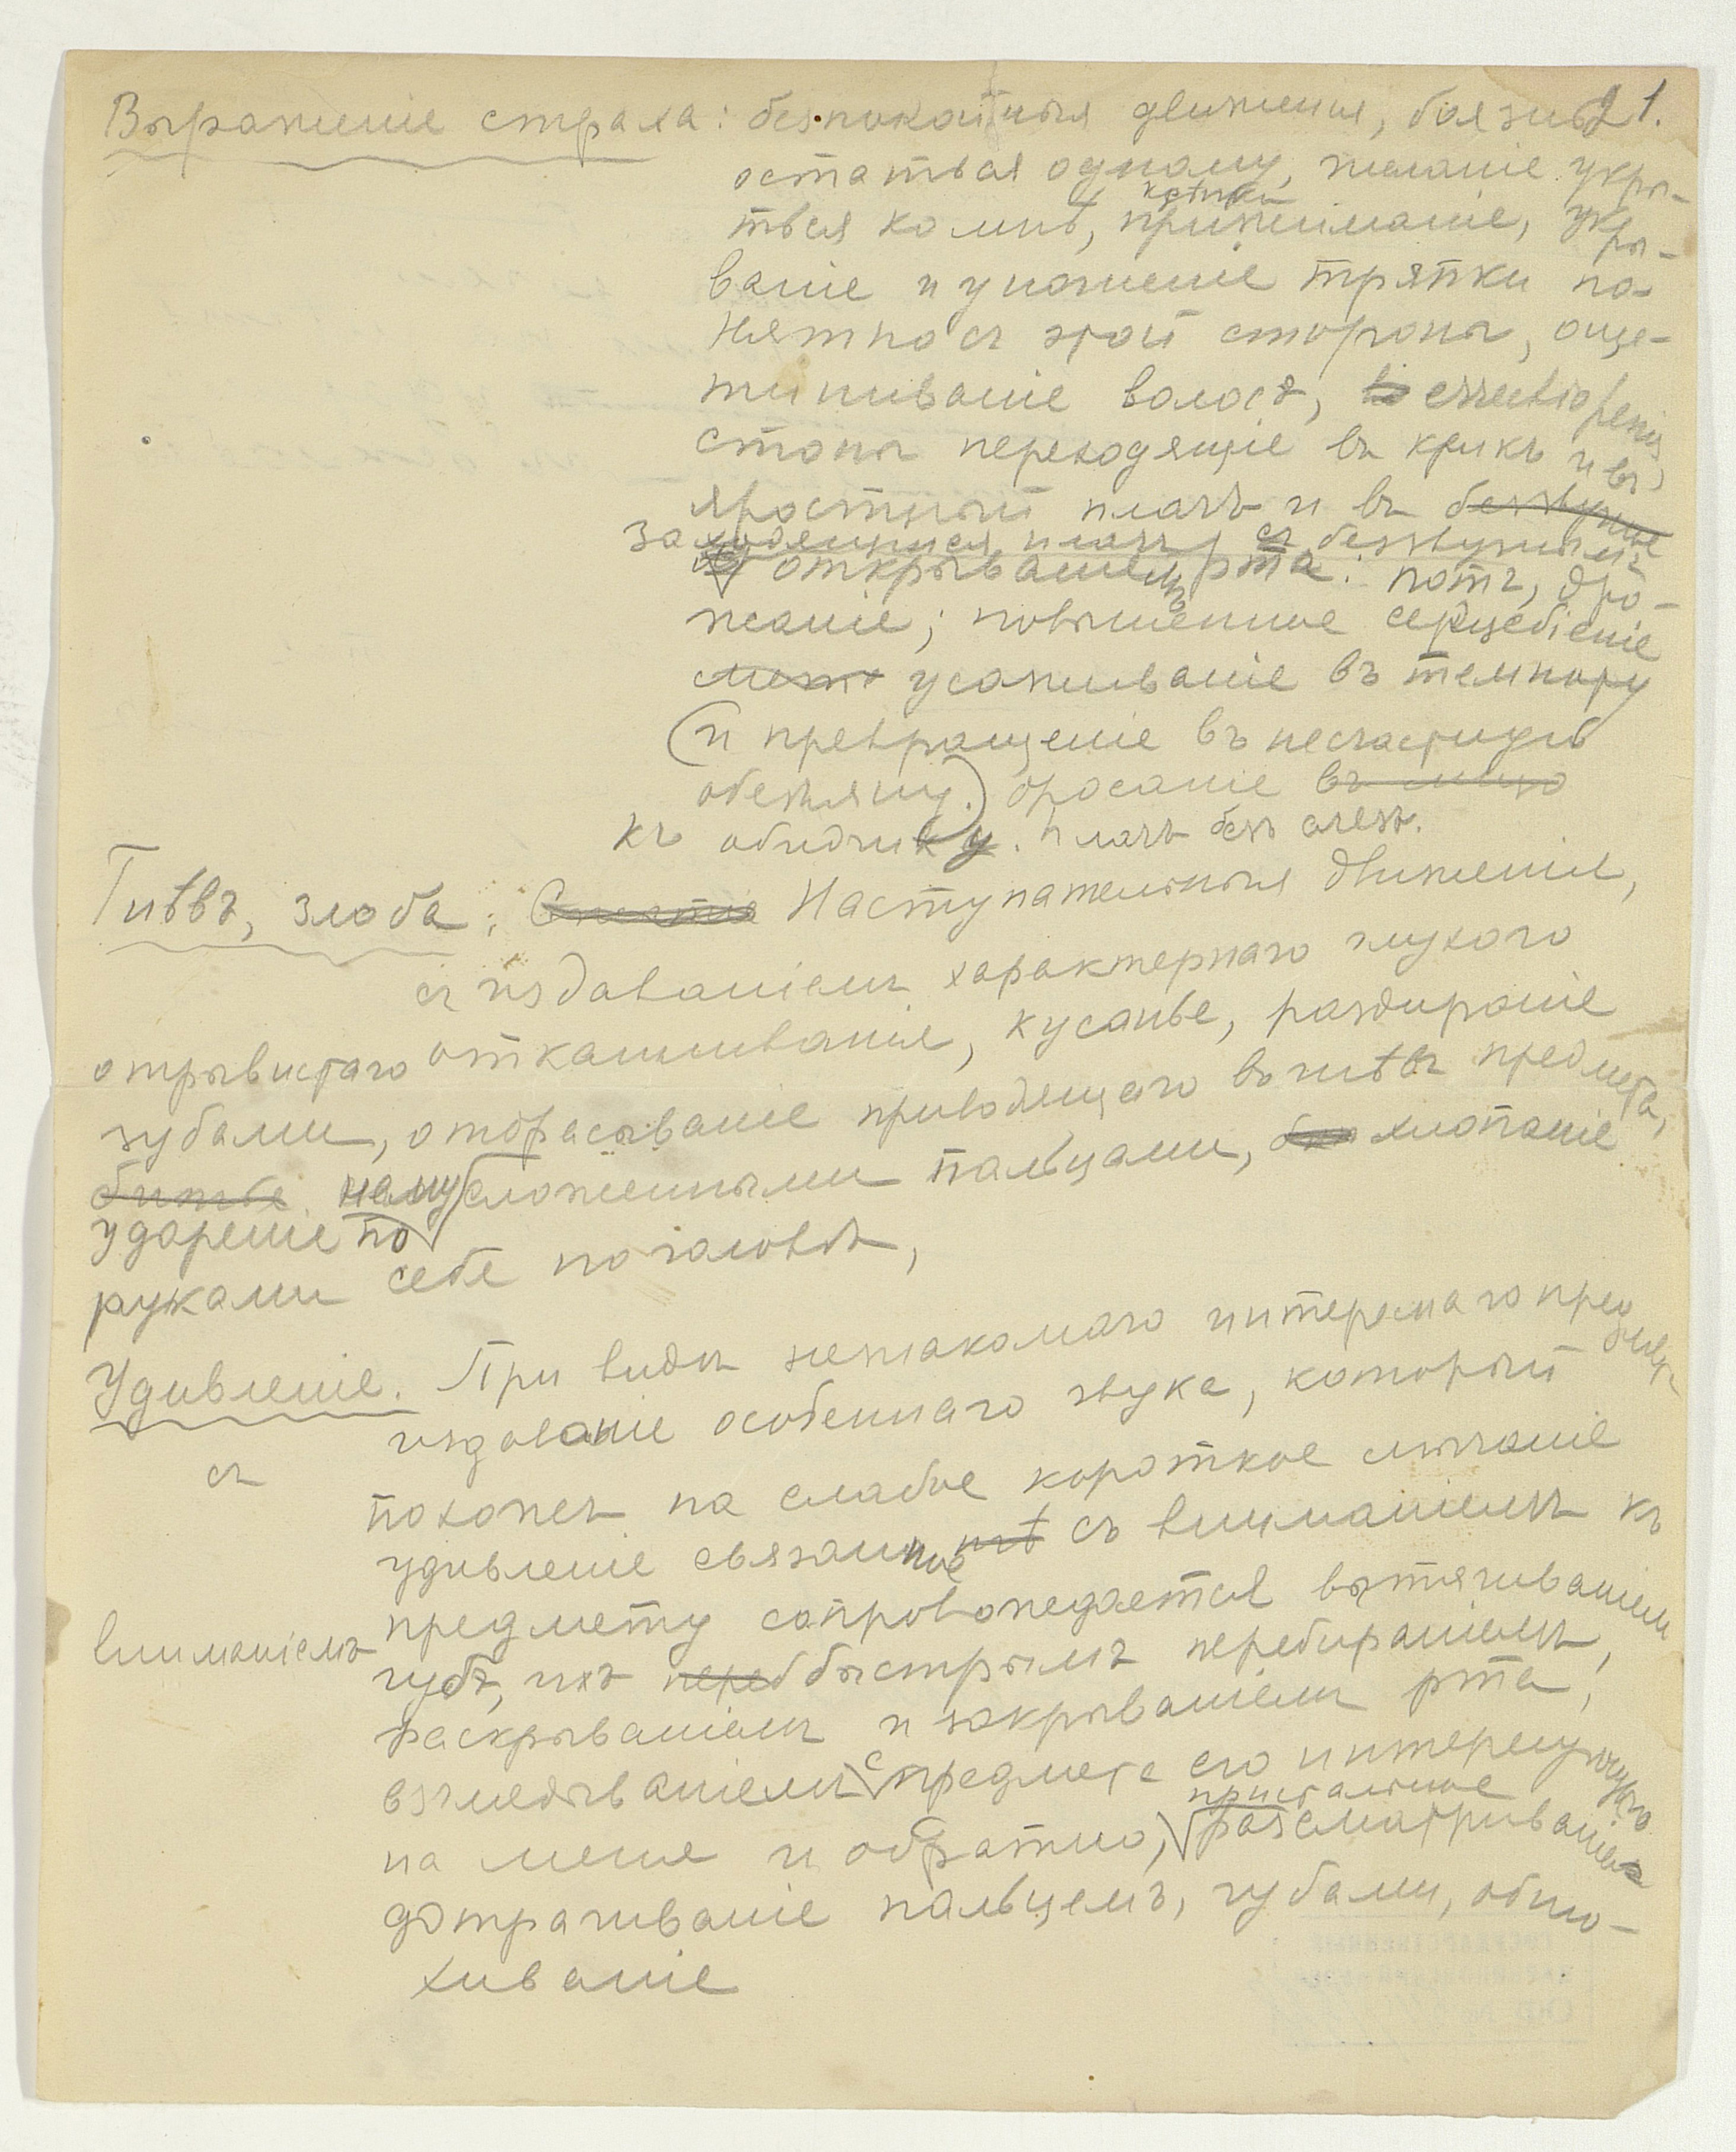 Выраженіе страха: безпокойныя движенія, боязнь 21.
остаться одному, желаніе укры-
ться ко мнѣ, прижиманіе, укры-
ваніе и уношеніе тряпки по-
нятно съ этой стороны, още-
тиниваніе волосъ,
стоны переходящіе въ крикъ и въ
яростный плачъ и въ беззвучное
заходящійся плачъ съ беззвучнымъ
открываніемъ рта: потъ, дро-
жаніе; повышенное сердцебіеніе
усаживаніе въ темноту
(и превращеніе въ несчастную
обезьяну.) бросаніе въ лицо
къ обидчику. плачъ безъ слезъ.
Гнѣвъ, злоба: Наступательныя движенія,
съ издаваніемъ характернаго глухого
отрывистаго откашливаніе, кусанье, раздираніе
зубами, отбрасываніе приводящаго въ гнѣвъ предмета,
битье сложенными пальцами, хлопаніе
удареніе по
руками себе по головѣ,
Удивленіе. При видѣ незнакомаго интереснаго предмета
издаваніе особеннаго звука, который
съ
похожъ на слабое короткое мычаніе
удивленіе связанное съ вниманіемъ къ
предмету сопровождается вытягиваніемъ
вниманіемъ
губъ, ихъ быстрымъ перебираніемъ,
раскрываніемъ и закрываніемъ рта,
взглядываніемъ с предмета его интересующаго
пристальное
на меня и обратно, разсматриваніе
дотрагиваніе пальцемъ, губами, обню-
хиваніе